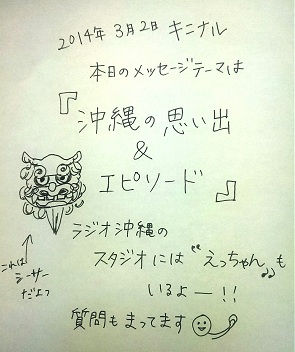 2014年 3月2日 キニナル
本日のメッセージテーマは
『沖縄の思い出
&
エピソード』
ラジオ沖縄の
スタジオには“えっちゃん”も
いるよー!!
質問もまってます
これは
シーサー
だよっ